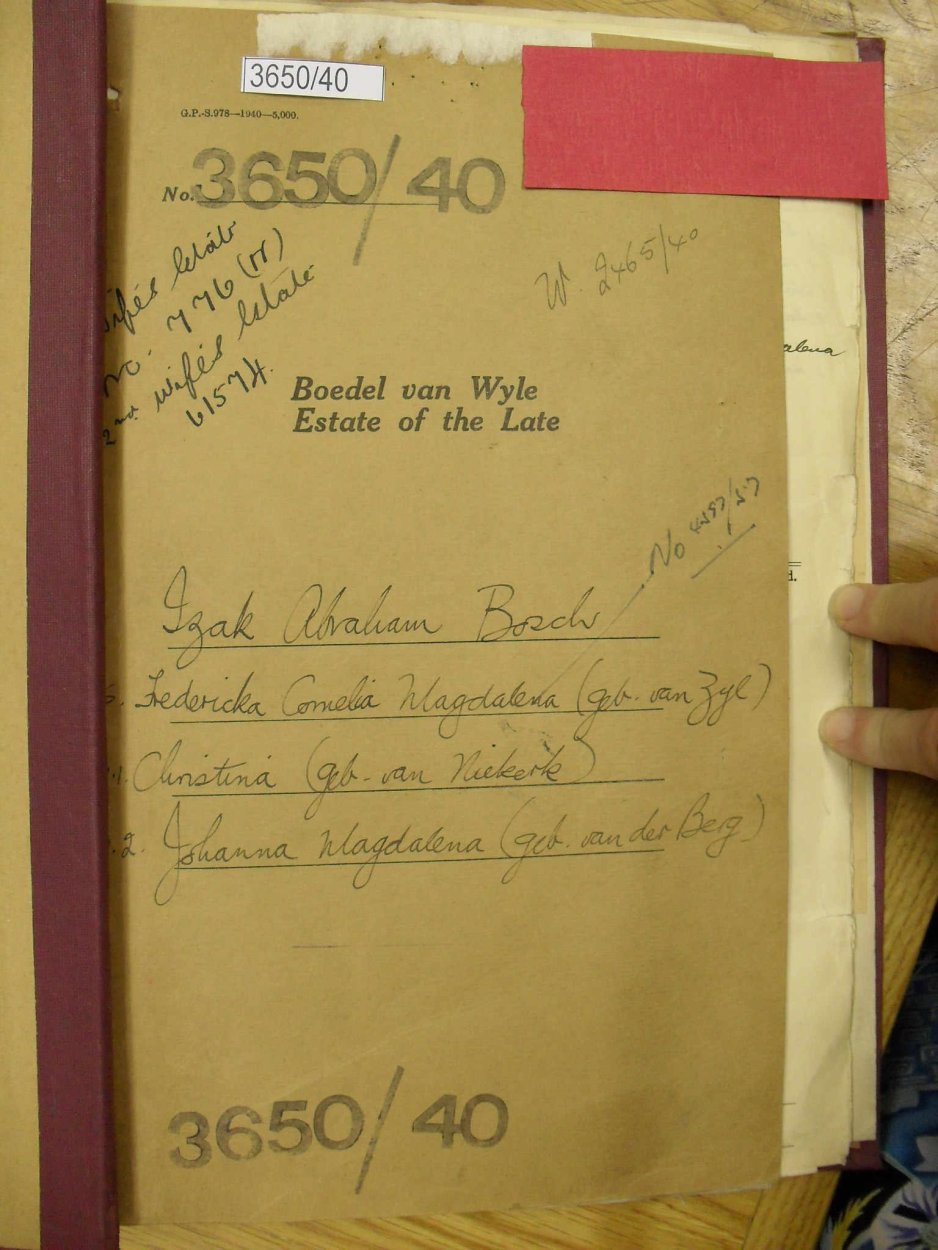 3650/40
G.P.-S.978—1940—5,000.
No. 3650/40
wife's Estate
No. 776 (M)
2nd wife's Estate
61574.
W. 2465/40
alena
Boedel van Wyle
Estate of the Late
No 4597/57
d.
Izak Abraham Bosch
S. Fredericka Cornelia Magdalena (geb. van Zyl)
.1. Christina (geb. van Niekerk)
.2. Johanna Magdalena (geb. van der Berg)
3650/40